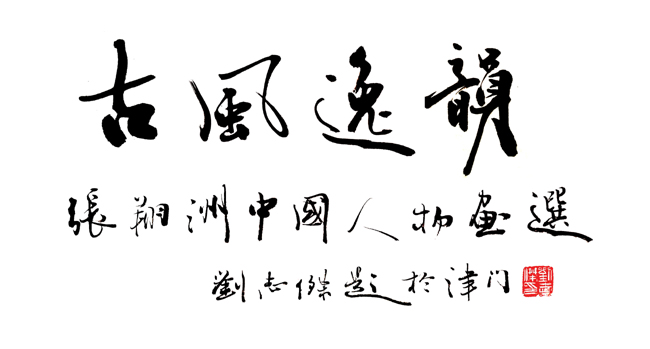 古風逸韻
張翔洲中國人物畫選
劉志傑題於津门